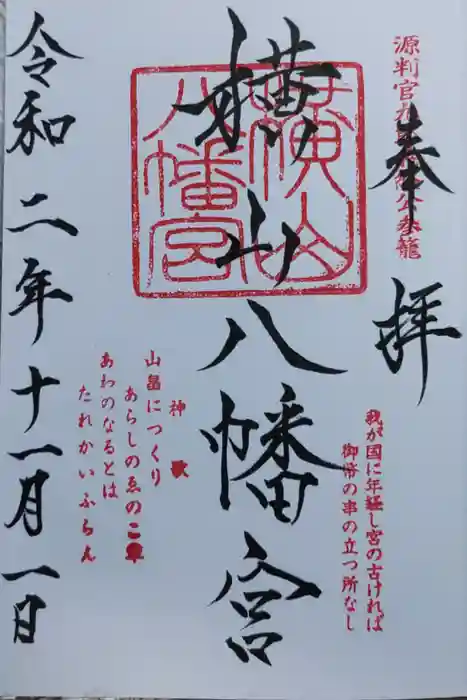 奉拝
源判官九郎義経公参籠
我が国に年経し宮の古ければ
御幣の串の立つ所なし
横山八幡宮
横山
八幡宮
神歌
山畠につくり
あらしのゑのこ草
あわのなるとは
たれかいふらん
令和二年十一月一日